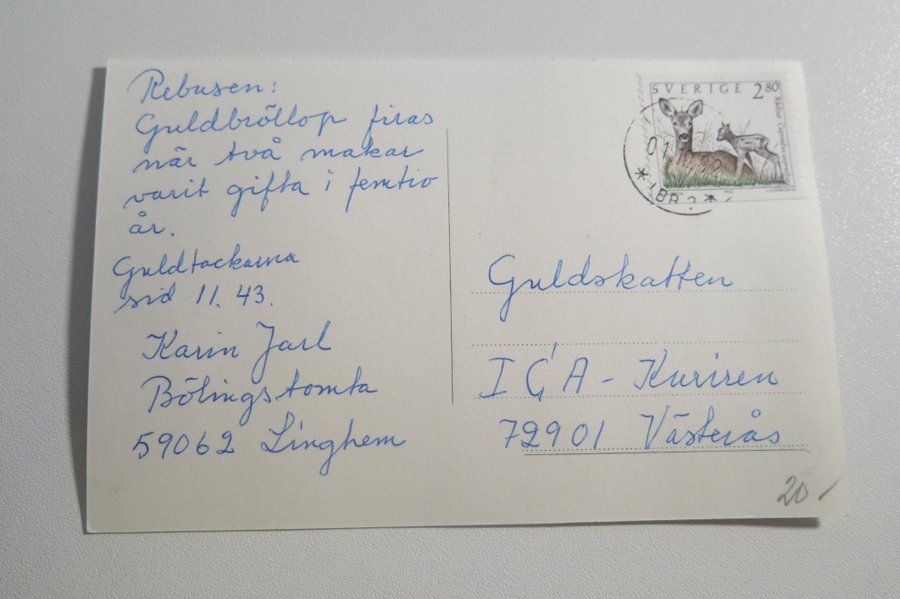 Rebusen:
Guldbröllop firas
när två makar
varit gifta i femtio
år.
Guldtackorna
sid 11. 43.
Karin Jarl
Bölingstomta
59062 Linghem
SVERIGE 2.80
Guldskatten
ICA-Kuriren
72901 Västerås
20